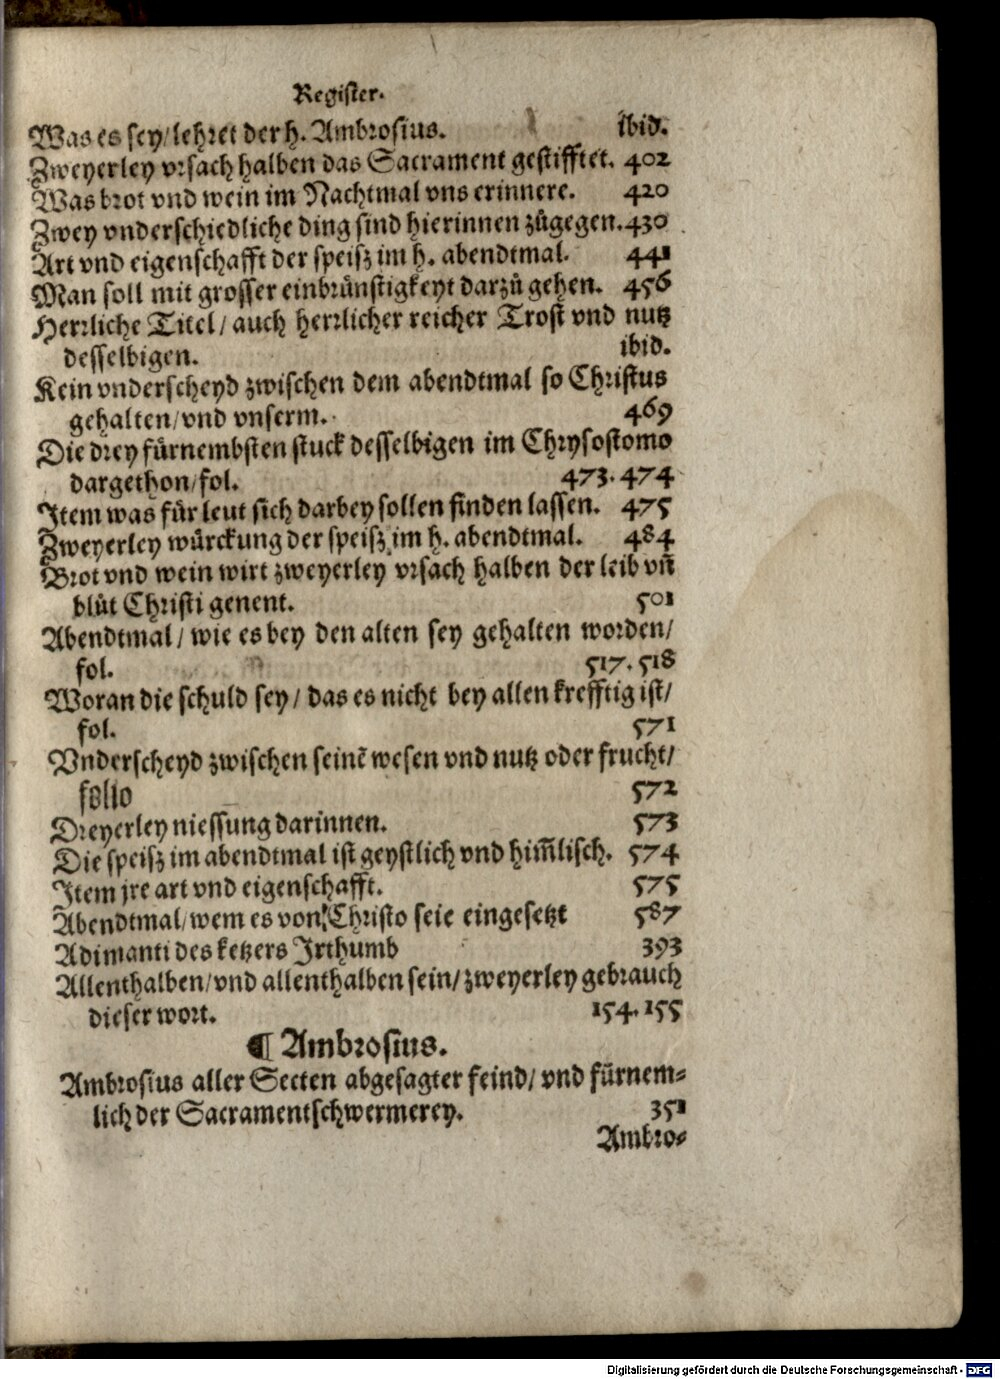 Register.
Was es sey/lehret der h. Ambrosius. ibid.
Zweyerley vrsach halben das Sacrament gestifftet. 402
Was brot vnd wein im Nachtmal vns erinnere. 420
Zwey vnderschiedliche ding sind hierinnen zůgegen. 430
Art vnd eigenschafft der speisz im h. abendtmal. 441
Man soll mit grosser einbrünstigkeyt darzů gehen. 456
Herrliche Titel/ auch herrlicher reicher Trost vnd nutz
desselbigen. ibid.
Kein vnderscheyd zwischen dem abendtmal so Christus
gehalten/vnd vnserm. 469
Die drey fürnembsten stuck desselbigen im Chrysostomo
dargethon/fol. 473. 474
Item was für leut sich darbey sollen finden lassen. 475
Zweyerley würckung der speisz im h. abendtmal. 484
Brot vnd wein wirt zweyerley vrsach halben der leib vn̄
blůt Christi genent. 501
Abendtmal/ wie es bey den alten sey gehalten worden/
fol. 517. 518
Woran die schuld sey/ das es nicht bey allen krefftig ist/
fol. 571
Vnderscheyd zwischen seinē wesen vnd nutz oder frucht/
folio 572
Dreyerley niessung darinnen. 573
Die speisz im abendtmal ist geystlich vnd him̄lisch. 574
Item jre art vnd eigenschafft. 575
Abendtmal/wem es von Christo seie eingesetzt 587
Adimanti des ketzers Irthumb 393
Allenthalben/vnd allenthalben sein/ zweyerley gebrauch
dieser wort. 154. 155
¶ Ambrosius.
Ambrosius aller Secten abgesagter feind/ vnd fürnem-
lich der Sacramentschwermerey. 351
Ambro-
Digitalisierung gefördert durch die Deutsche Forschungsgemeinschaft - DFG